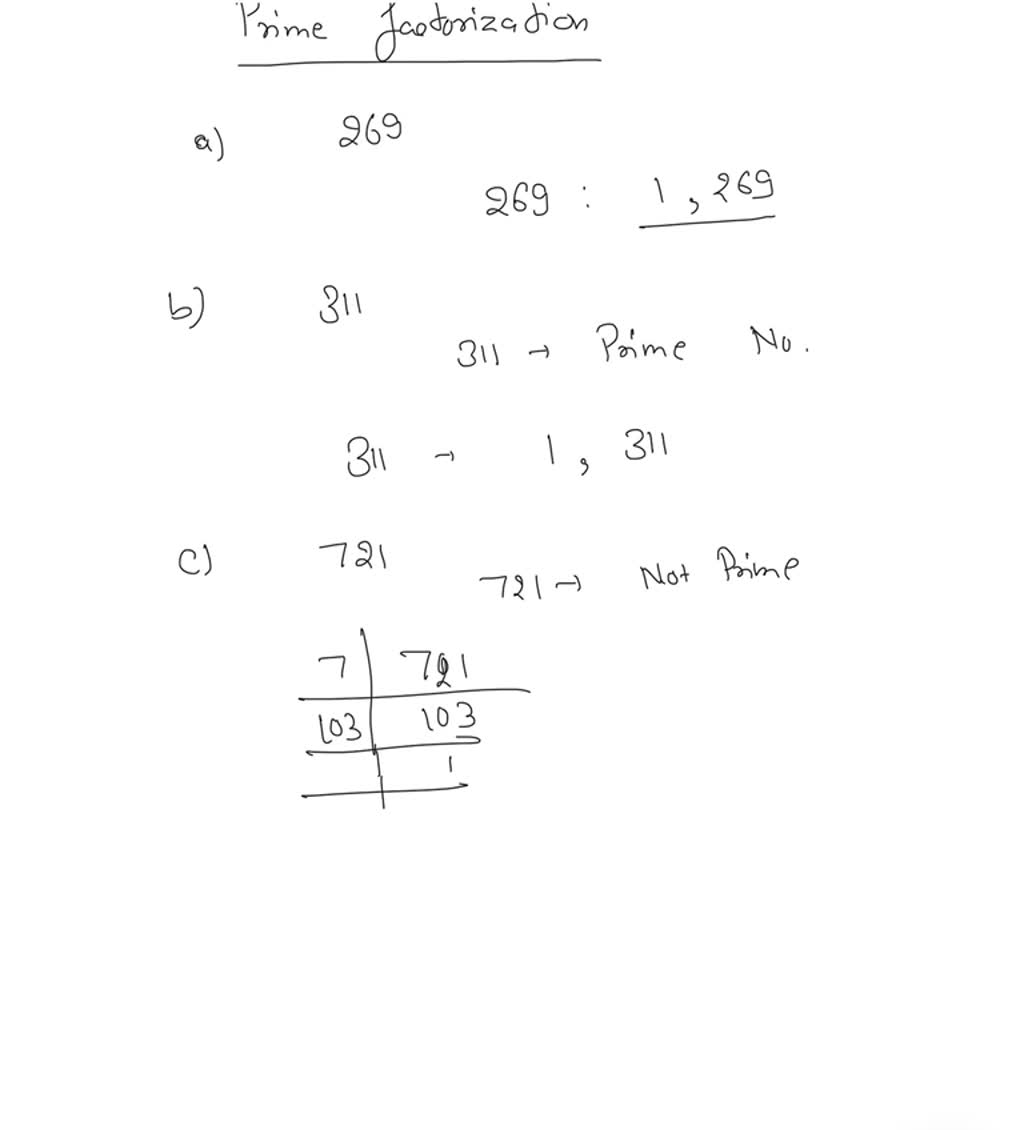 Prime factorization
a) 269
269 : 1, 269
b) 311
311 → Prime No.
311 → 1, 311
c) 721
721 → Not Prime
7 721
103 103
1